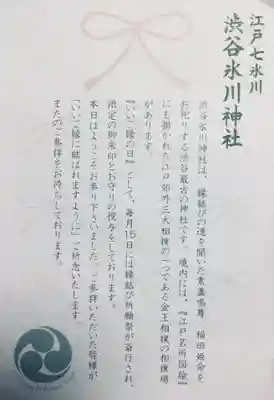 江戸七氷川
渋谷氷川神社
渋谷氷川神社は、縁結びの道を開いた素盞鳴尊　稲田姫命を
お祀りする渋谷最古の神社です。境内には、『江戸名所図絵』
にも描かれた江戸郊外三大相撲の一つである金王相撲の相撲場
があります。
『いいご縁の日』として、毎月15日には縁結び祈願祭が斎行され、
限定の御朱印とお守りの授与をしております。
本日はようこそお参り下さいました。ご参拝いただいた皆様が
「いいご縁に結ばれますように」ご祈念いたします。
またのご参拝をお待ちしております。